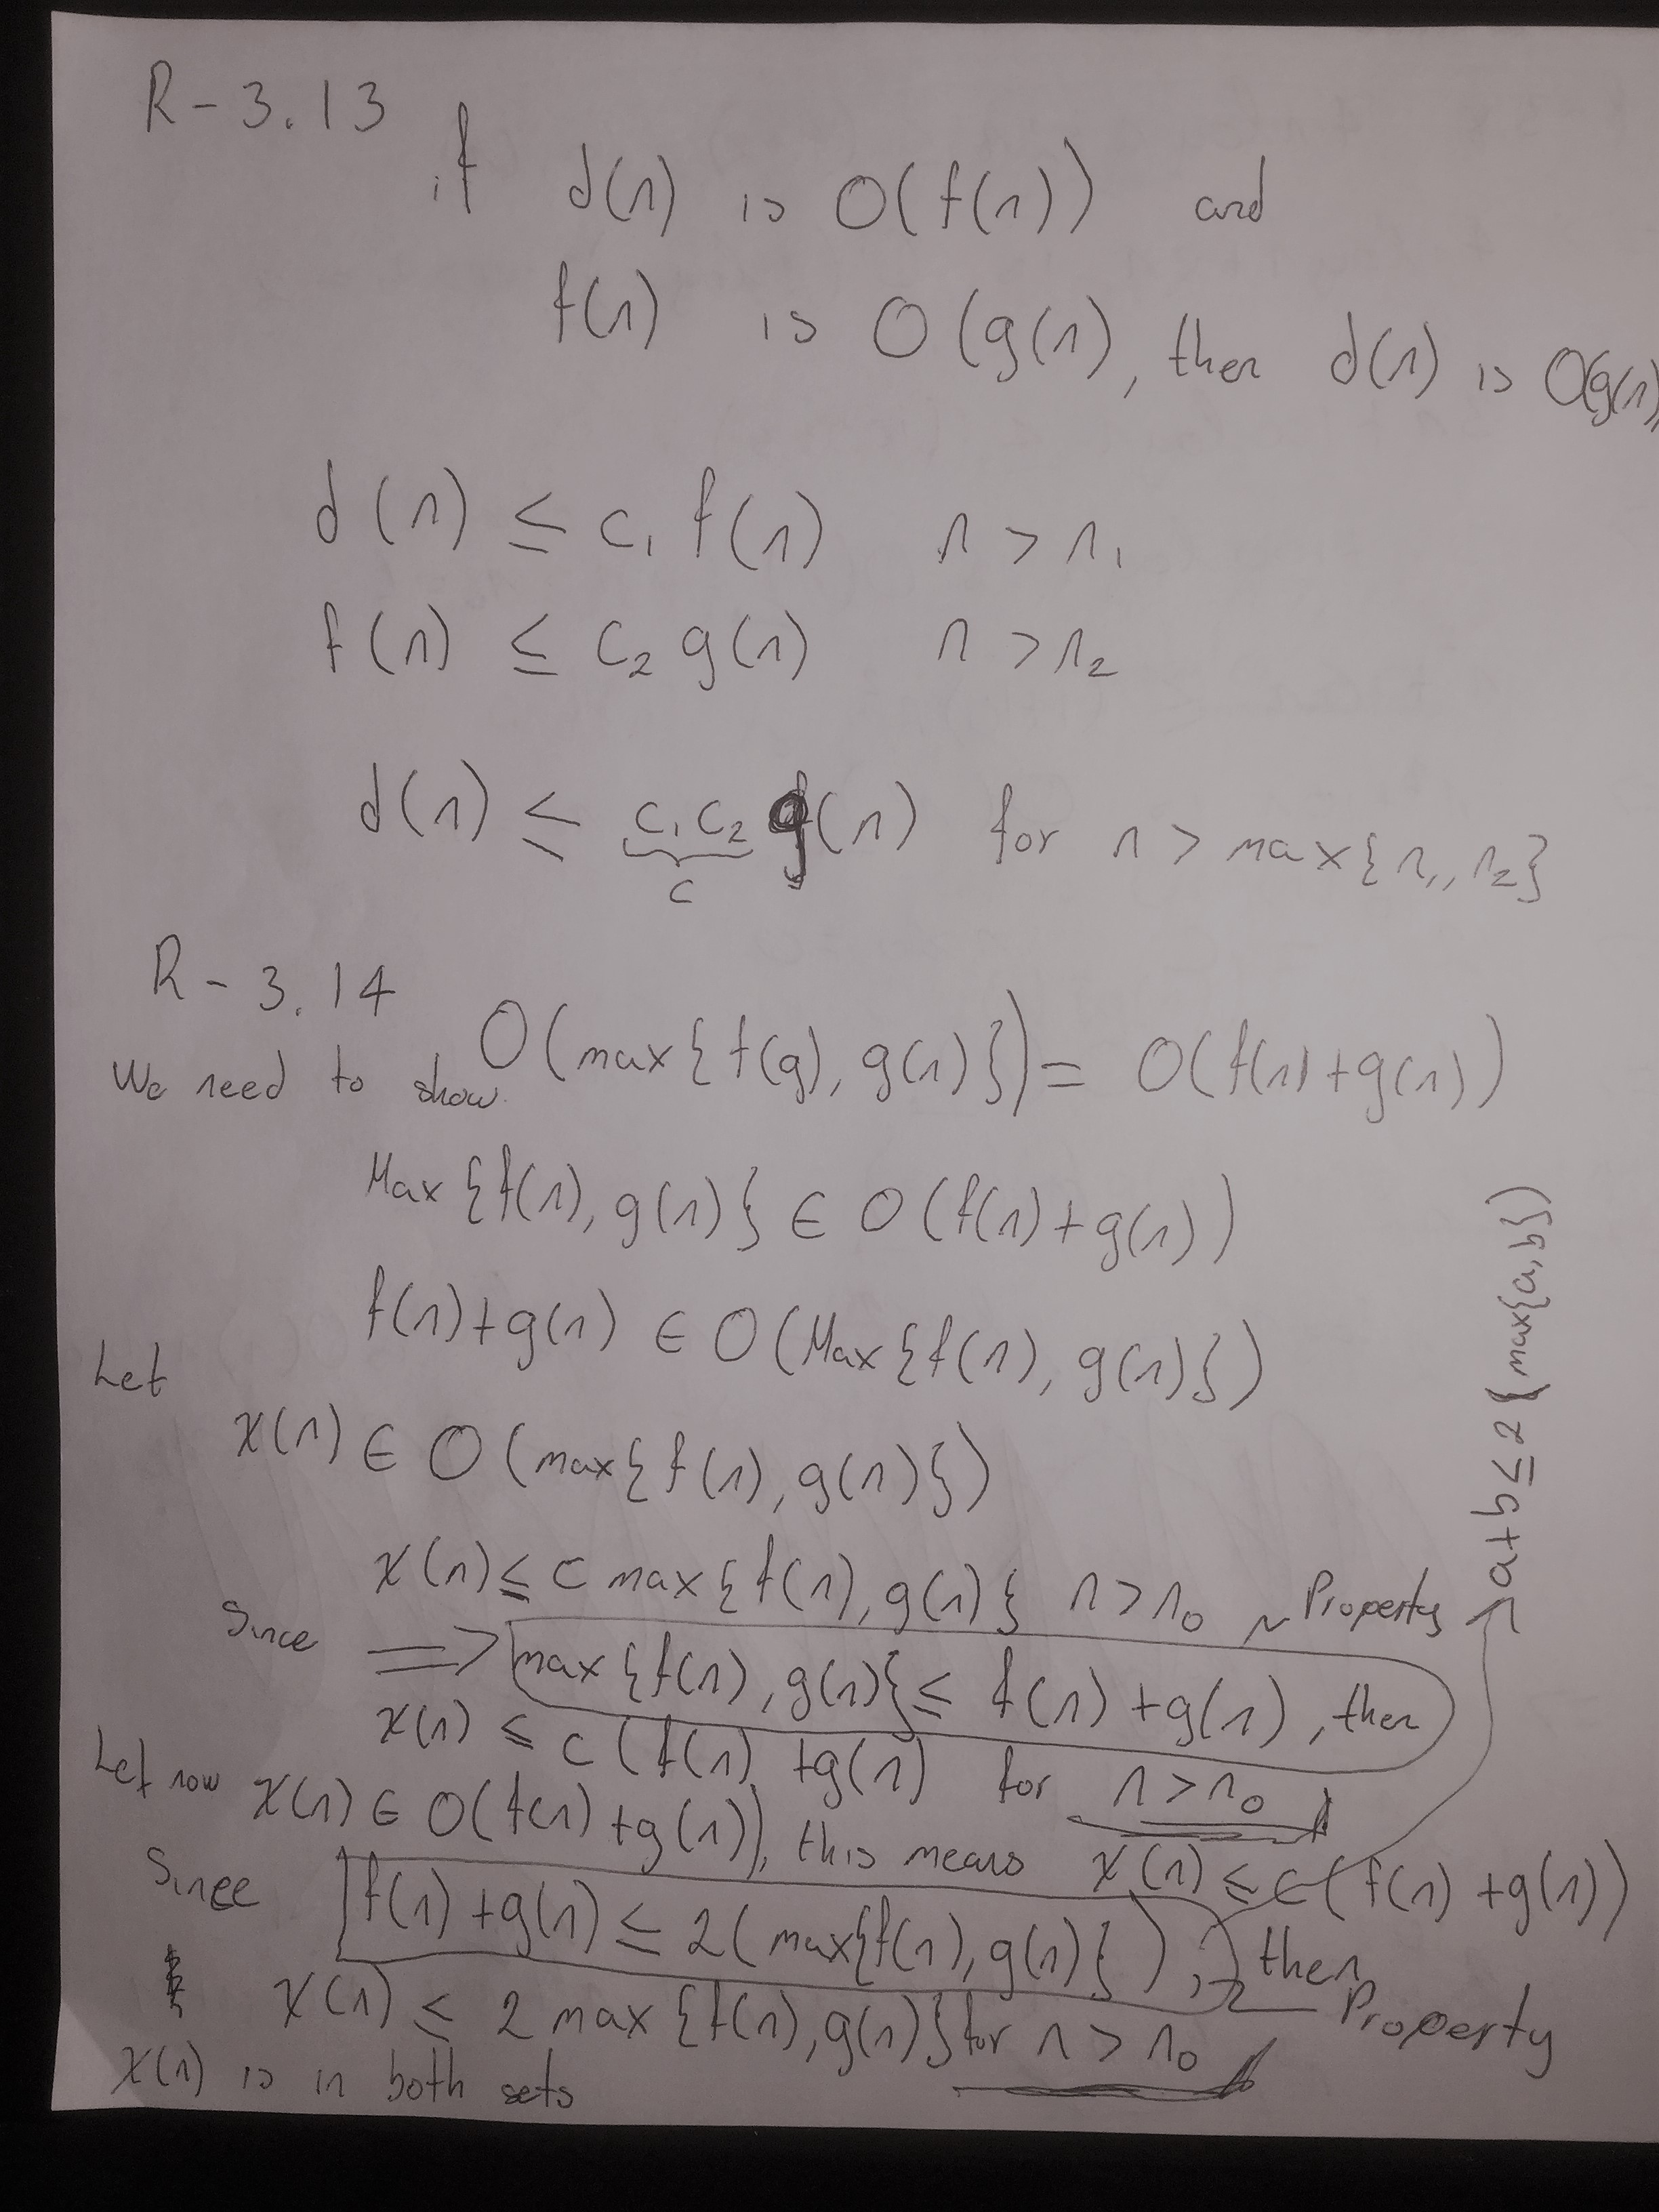 R-3.13
if d(n) is O(f(n)) and
f(n) is O(g(n), then d(n) is O(g(n)
d(n) ≤ c₁ f(n) n > n₁
f(n) ≤ c₂ g(n) n > n₂
d(n) ≤ c₁ c₂ g(n) for n > max{n₁, n₂}
c
R-3.14
We need to show O(max{f(g), g(n)}) = O(f(n)+g(n))
Max{f(n), g(n)} ∈ O(f(n)+g(n))
f(n)+g(n) ∈ O(Max{f(n), g(n)})
Let
x(n) ∈ O(max{f(n), g(n)})
x(n) ≤ c max{f(n), g(n)} n > n₀ ~ Property
Since => max{f(n), g(n)} ≤ f(n)+g(n), then
x(n) ≤ c(f(n)+g(n) for n > n₀
Let now x(n) ∈ O(f(n)+g(n)), this means x(n) ≤ c(f(n)+g(n))
Since f(n)+g(n) ≤ 2(max{f(n), g(n)}), then
Property
x(n) ≤ 2 max{f(n), g(n)} for n > n₀
x(n) is in both sets
a+b ≤ 2{max{a,b})